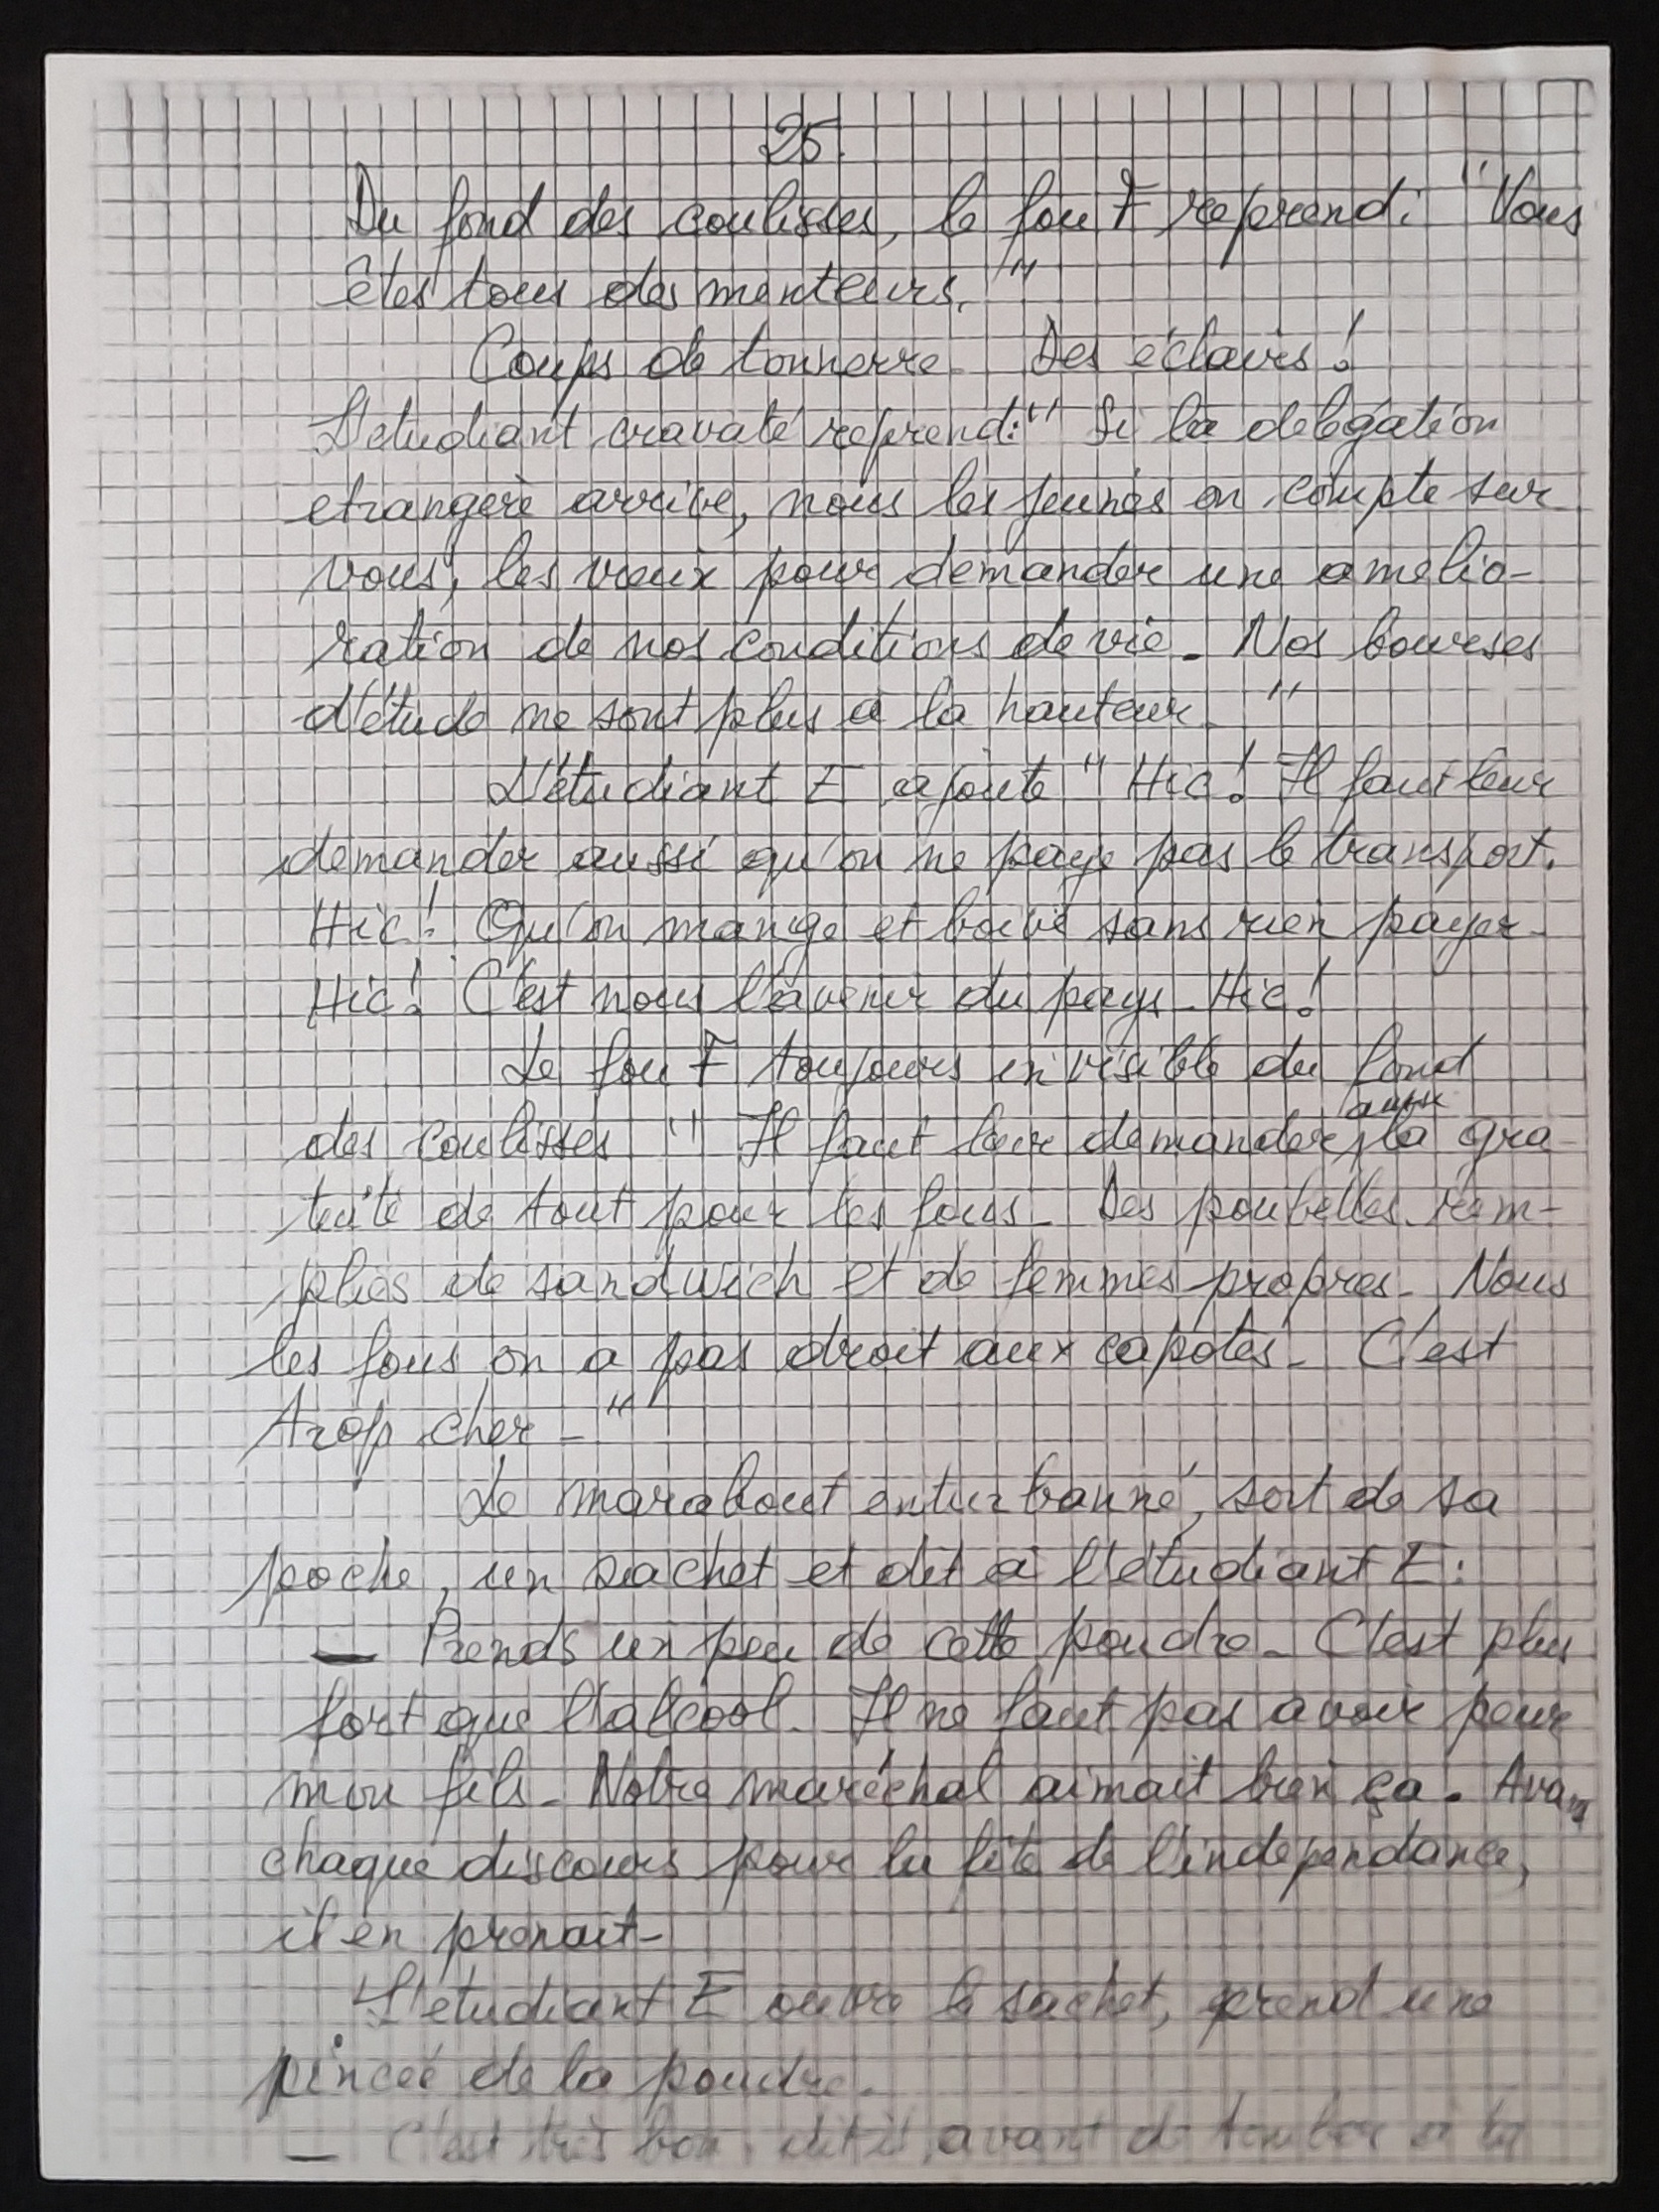 25.
Du fond des coulisses, le fou F reprend: "Vous
êtes tous des menteurs."
Coups de tonnerre. Des éclairs!
L'étudiant cravaté reprend: "Si la délégation
etrangère arrive, nous les jeunes on compte sur
vous, les vieux pour demander une amélio-
ration de nos conditions de vie. Nos bourses
d'étude ne sont plus à la hauteur. "
L'étudiant E ajoute "Hic! Il faut leur
demander aussi qu'on ne paye pas le transport.
Hic! Qu'on mange et boive sans rien payer.
Hic! C'est nous l'avenir du pays. Hic!
Le fou F toujours invisible du fond
des coulisses " Il faut leur demander aussi la gra-
tuité de tout pour les fous. Des poubelles rem-
plies de sandwich et de femmes propres. Nous
les fous on a pas droit aux capotes. C'est
trop cher. "
Le marabout enturbanné, sort de sa
poche, un sachet et dit à l'étudiant E:
— Prends un peu de cette poudre. C'est plus
fort que l'alcool. Il ne faut pas avoir peur
mon fils. Notre maréchal aimait bien ça. Avant
chaque discours pour la fête de l'indépendance,
il en prenait.
L'étudiant E ouvre le sachet, prend une
pincée de la poudre.
— C'est très bon, dit-il, avant de tomber à la